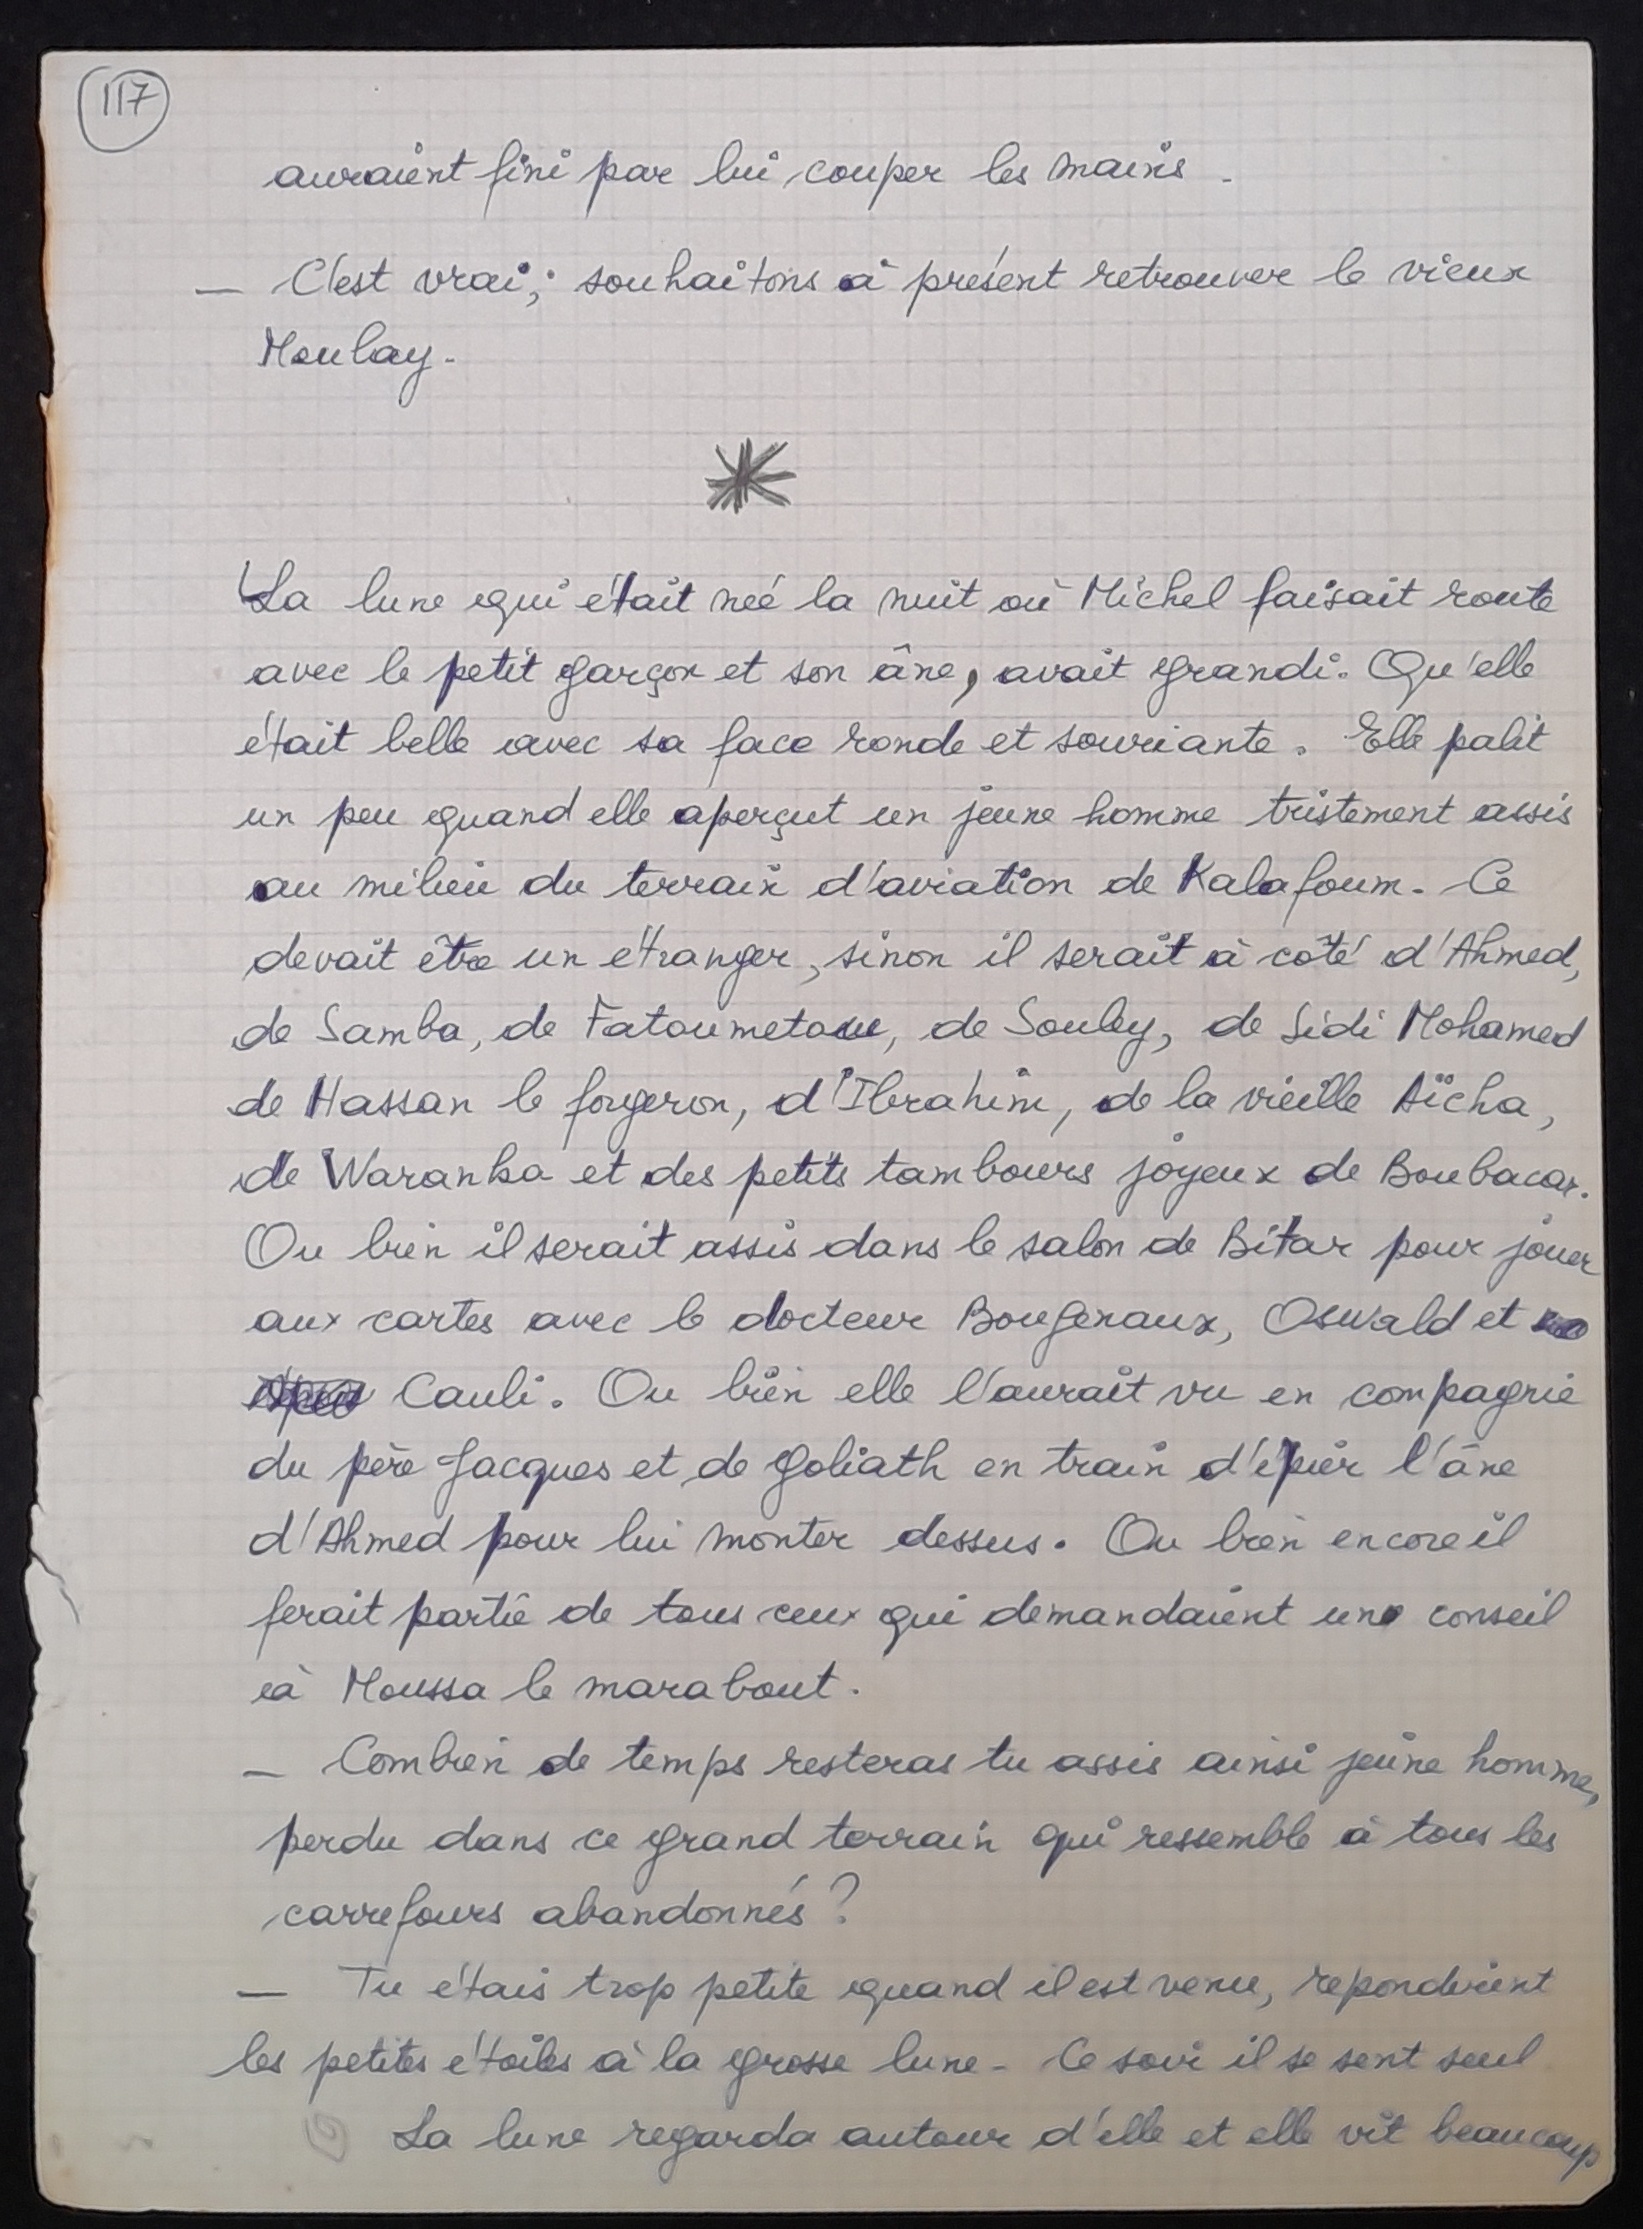 117
auraient fini par lui couper les mains.
— C'est vrai; souhaitons à présent retrouver le vieux
Moulay.
La lune qui était née la nuit où Michel faisait route
avec le petit garçon et son âne, avait grandi. Qu'elle
était belle avec sa face ronde et souriante. Elle palit
un peu quand elle aperçut un jeune homme tristement assis
au milieu du terrain d'aviation de Kalafoum. Ce
devait être un étranger, sinon il serait à côté d'Ahmed,
de Samba, de de Souley, de Sidi Mohamed
de Hassan le forgeron, d'Ibrahim, de la vieille Aïcha,
de Waranka et des petits tambours joyeux de Boubacar.
Ou bien il serait assis dans le salon de Bitar pour jouer
aux cartes avec le docteur Bougenaux, Oswald et
Cauli. Ou bien elle l'aurait vu en compagnie
du père Jacques et de Goliath en train d'épier l'âne
d'Ahmed pour lui monter dessus. Ou bien encore il
ferait partie de tous ceux qui demandaient un conseil
à Moussa le marabout.
— Combien de temps resteras tu assis ainsi jeune homme,
perdu dans ce grand terrain qui ressemble à tous les
carrefours abandonnés ?
— Tu étais trop petite quand il est venu, repondirent
les petites étoiles à la grosse lune - Ce soir il se sent seul
La lune regarda autour d'elle et elle vit beaucoup